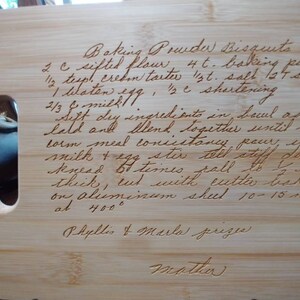 Baking Powder Bisquits
2 c sifted flour 4 t. baking po
1/2 tsp cream tarter 1/2 t. salt 2 T
1 beaten egg, 1/2 c shortening
2/3 c milk
Sift dry ingredients in bowl a
lard and blend together until
corn meal consistancy pour
milk & egg stir till stiff d
knead 5 times roll
thick, cut with cutter ba
on aluminum sheet 10-15
at 400°
Phyllis & Marla prizes
Mother